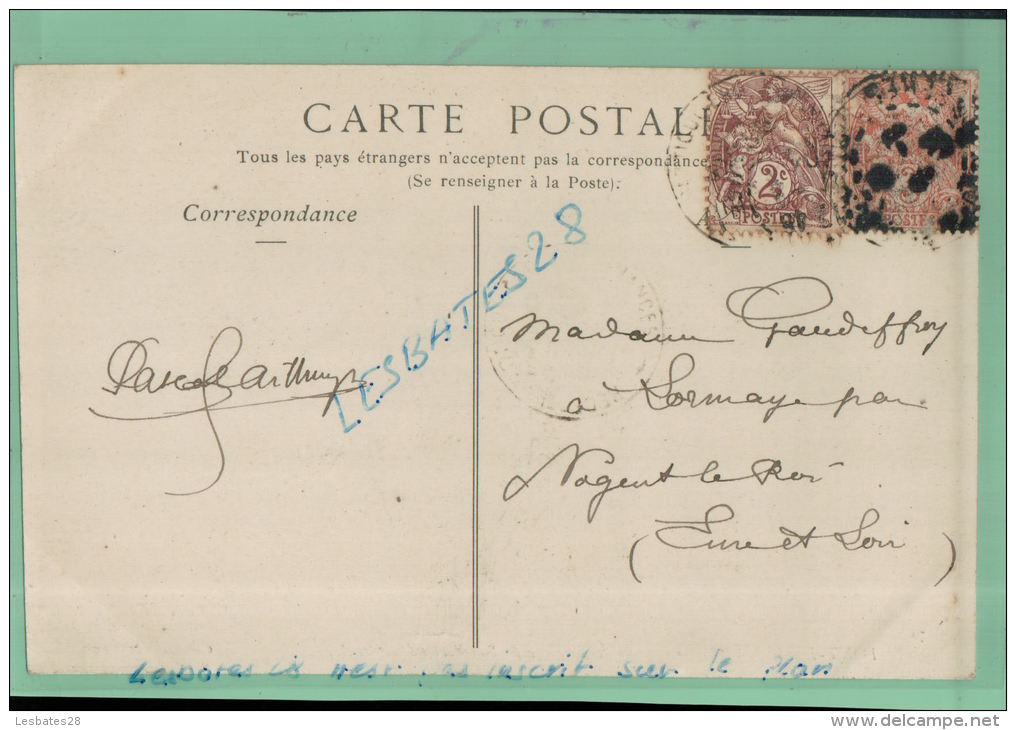 CARTE POSTALE
Tous les pays étrangers n'acceptent pas la correspondance
(Se renseigner à la Poste).
Correspondance
2c
POSTES
POSTES
LESBATES28
Madame Gaudeffroy
a Lormaye par
Nogent le Roi
(Eure et Loir)
Lesbates 28 n'est pas inscrit sur le plan
Lesbates28
www.delcampe.net